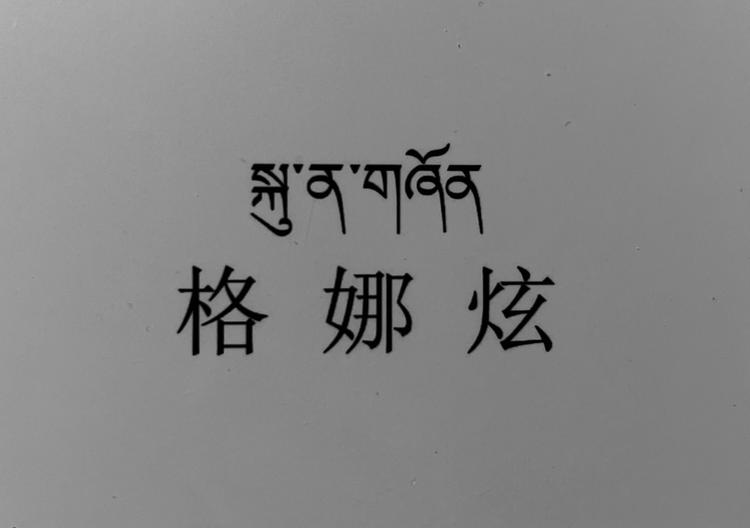 སྐུ་ན་གཞོན
格娜炫